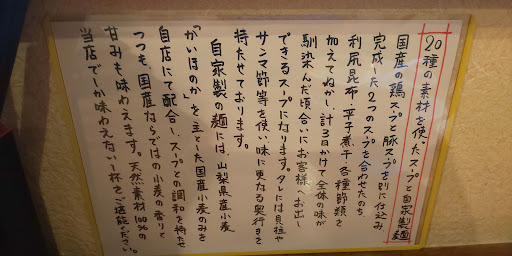 20種の素材を使ったスープと自家製麺
国産の鶏スープと豚スープを別に仕込み
完成した2つのスープを合わせたのち、
利尻昆布・平子煮干・各種節類を
加えてねかし、計3日かけて全体の味が
馴染んだ頃合いにお客様へお出し
できるスープになります。タレには貝柱や
サンマ節等を使い味に更なる奥行きを
持たせております。
自家製の麺には、山梨県産小麦
「かいほのか」を主とした国産小麦のみを
自店にて配合し、スープとの調和を持たせ
つつも、国産ならではの小麦の香りと
甘みも味わえます。天然素材100%の
当店でしか味わえない1杯をご堪能ください。